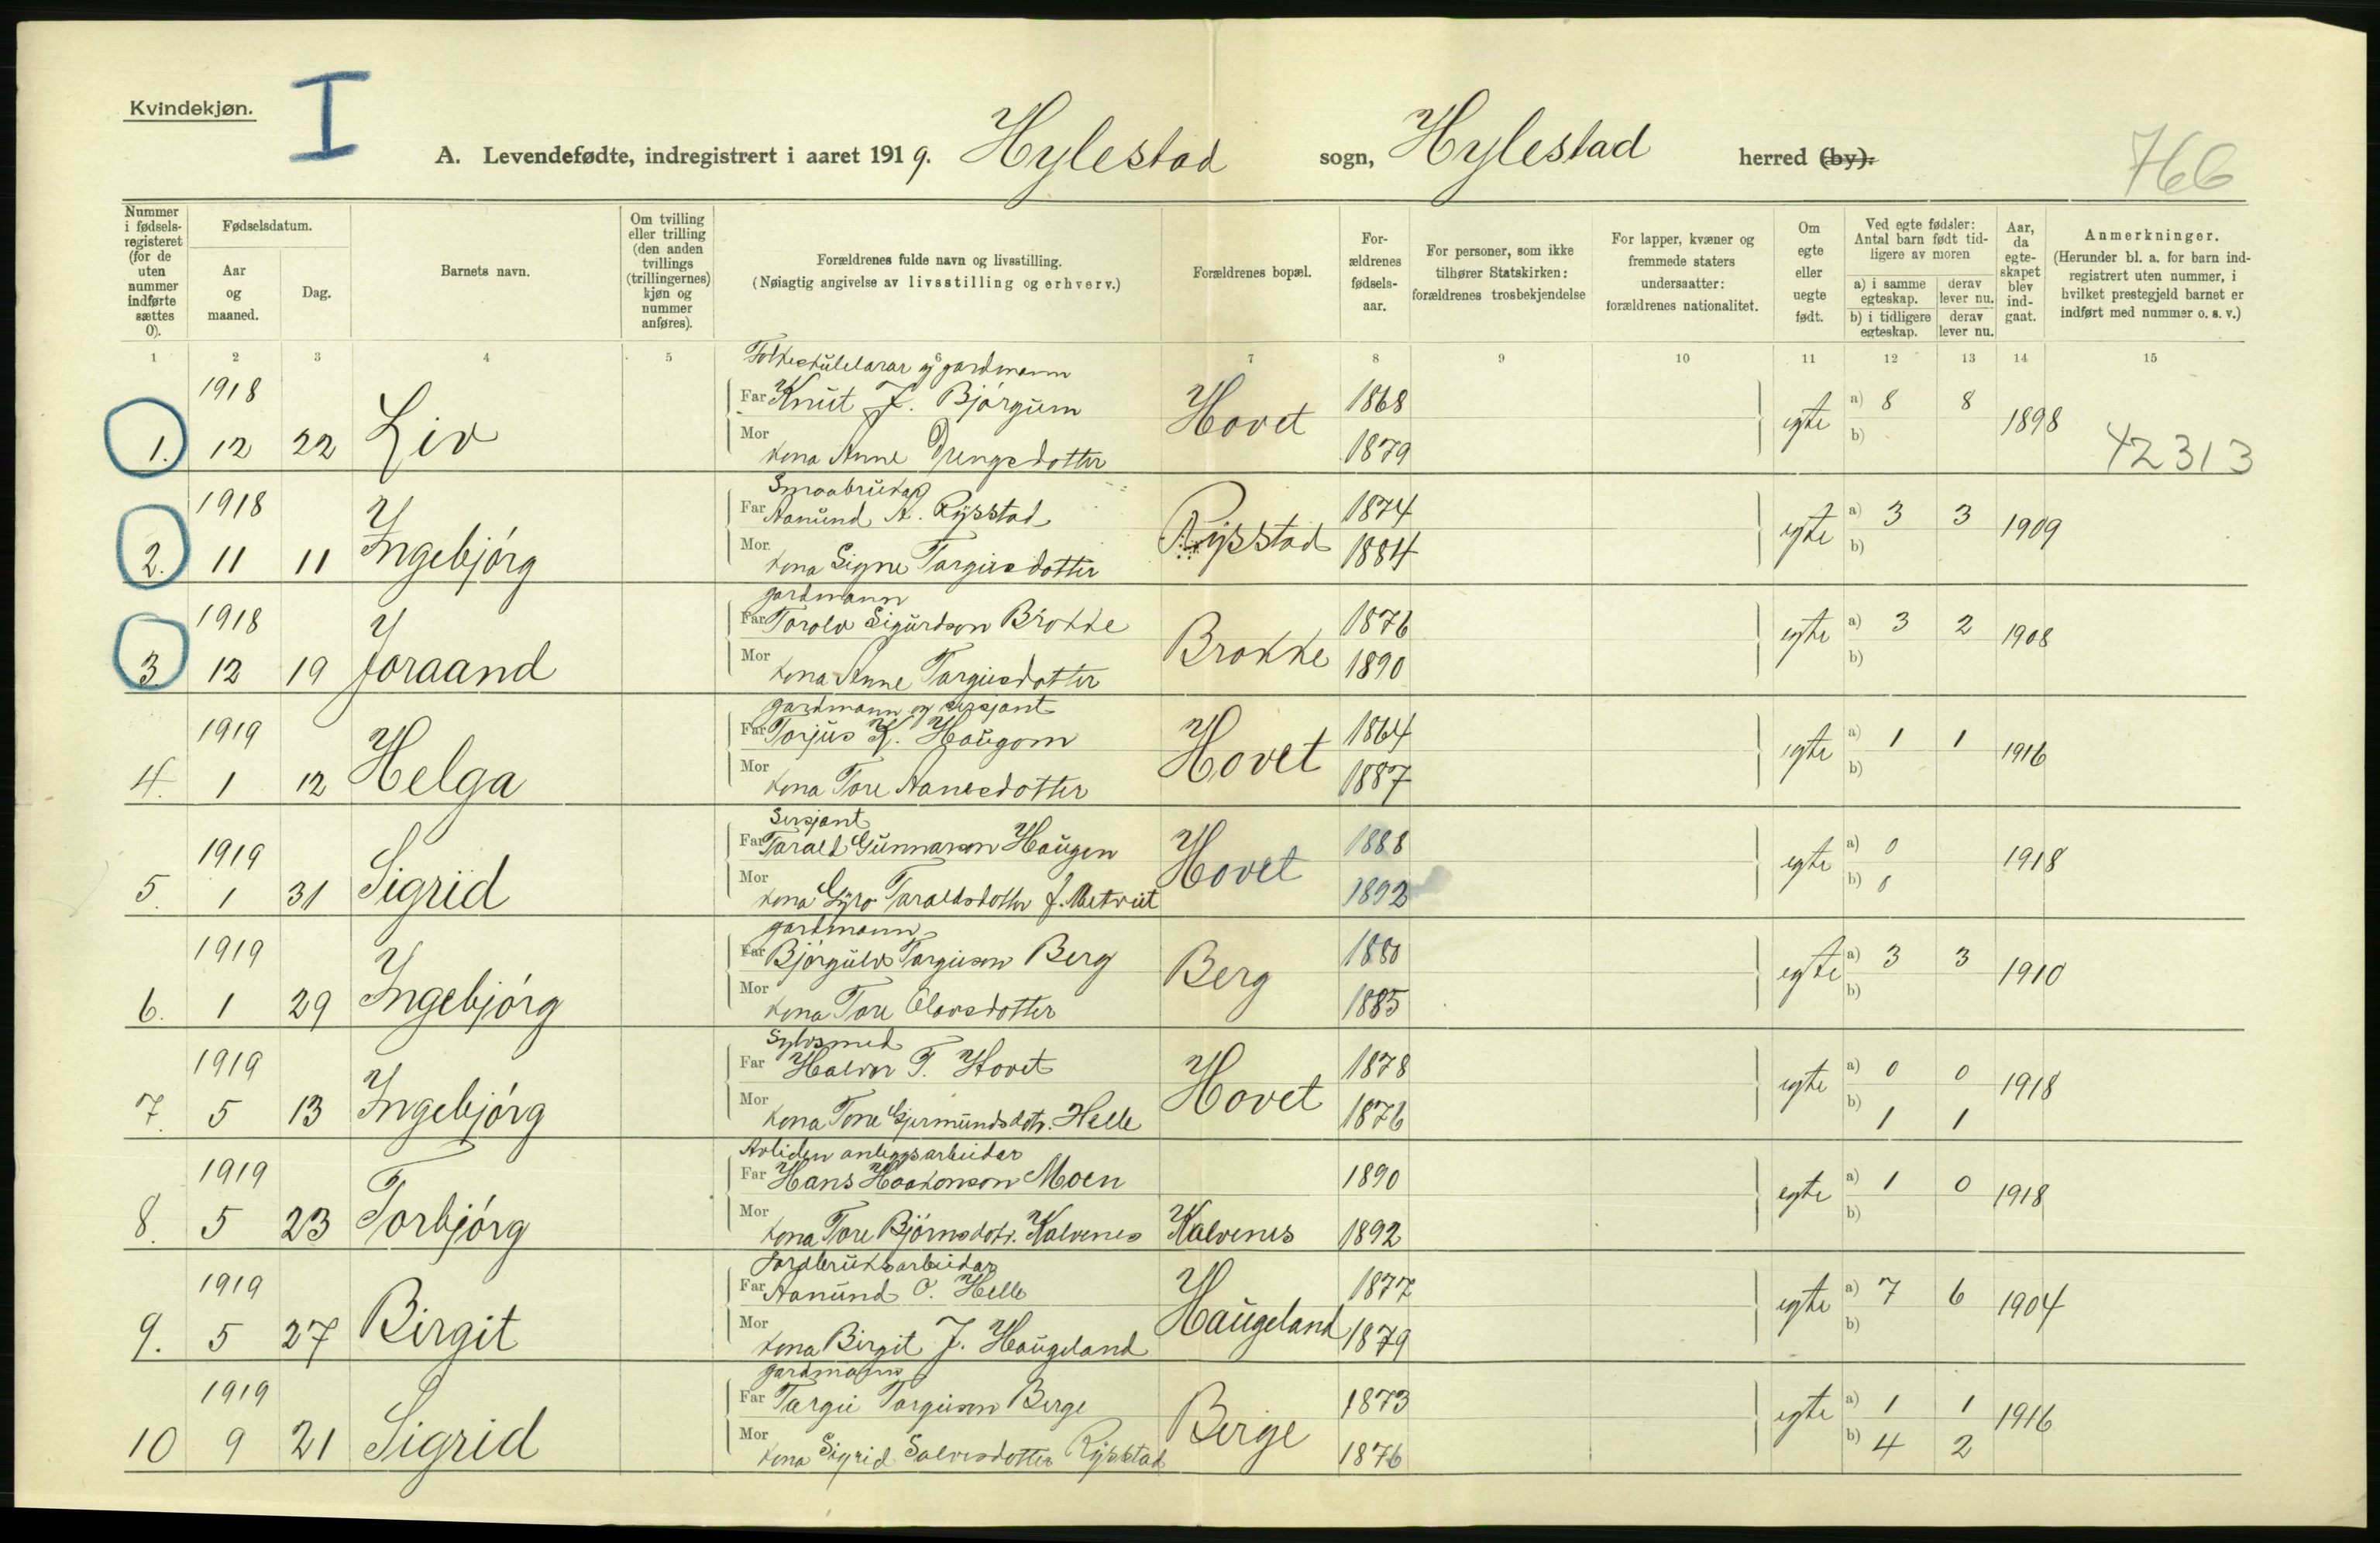 Kvindekjøn.
I
A. Levendefødte, indregistrert i aaret 1919. Hylestad sogn, Hylestad herred (by).
766
Nummer i fødselsregisteret (for de uten nummer indførte sættes 0).
Fødselsdatum.
Aar og maaned.
Dag.
Barnets navn.
Om tvilling eller trilling (den anden tvillings (trillingernes) kjøn og nummer anføres).
Forældrenes fulde navn og livsstilling.
(Nøiagtig angivelse av livsstilling og erhverv.)
Forældrenes bopæl.
Forældrenes fødselsaar.
For personer, som ikke tilhører Statskirken: forældrenes trosbekjendelse
For lapper, kvæner og fremmede staters undersaatter: forældrenes nationalitet.
Om egte eller uegte født.
Ved egte fødsler: Antal barn født tidligere av moren
a) i samme egteskap.
derav lever nu.
b) i tidligere egteskap.
derav lever nu.
Aar, da egteskapet blev indgaat.
Anmerkninger.
(Herunder bl. a. for barn indregistrert uten nummer, i hvilket prestegjeld barnet er indført med nummer o. s. v.)
1 2 3 4 5 7 8 9 10 11 12 13 14 15
Folkeskulelærar og gardmann
1918 Far Knut J. Bjørgum Hovet 1868 egte a) 8 8 1898
1. 12 22 Liv Mor kona Anne Drengsdotter 1879 b) 42313
Smaabrukar
1918 Far Aanund A. Rysstad Rysstad 1874 egte a) 3 3 1909
2. 11 11 Ingebjørg Mor kona Signe Targjusdotter 1884 b)
gardmann
1918 Far Torolv Sigurdson Brokke Brokke 1876 egte a) 3 2 1908
3 12 19 Joraand Mor kona Anne Targjusdotter 1890 b)
gardmann og sersjant
1919 Far Torjus K. Haugom Hovet 1864 egte a) 1 1 1916
4. 1 12 Helga Mor kona Tore Aanesdotter 1887 b)
Sersjant
1919 Far Tarald Gunnarson Haugen Hovet 1888 egte a) 0 1918
5. 1 31 Sigrid Mor kona Gyro Taraldsdotter f. 1892 b) 0
gardmann
1919 Far Bjørgulv Targjuson Berg Berg 1880 egte a) 3 3 1910
6. 1 29 Ingebjørg Mor kona Tore Olavsdotter 1885 b)
Sylvsmed
1919 Far Halvor T. Hovet Hovet 1878 egte a) 0 0 1918
7. 5 13 Ingebjørg Mor kona Tone Gjermundsdotr. Helle 1876 b) 1 1
Avliden anleggsarbeidar
1919 Far Hans Haakonson Moen 1890 egte a) 1 0 1918
8. 5 23 Torbjørg Mor kona Tore Bjørnsdotr. Kalvenes Kalvenes 1892 b)
Jordbruksarbeidar
1919 Far Aanund O. Helle Haugeland 1877 egte a) 7 6 1904
9. 5 27 Birgit Mor kona Birgit J. Haugeland 1879 b)
gardmann
1919 Far Targju Targjuson Berge Berge 1873 egte a) 1 1 1916
10 9 21 Sigrid Mor kona Sigrid Salvesdotter Rysstad 1876 b) 4 2